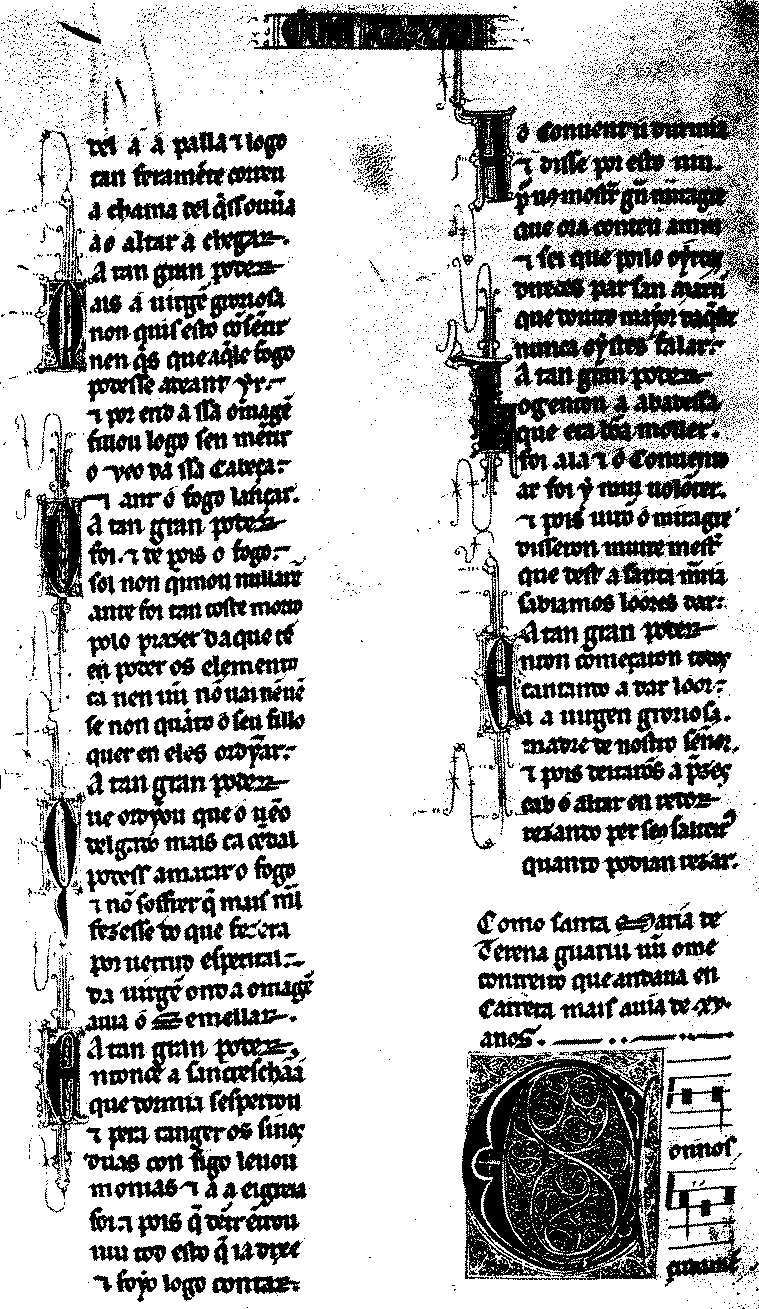 del a a palla ⁊ logo
tan feramēte correu
a chama del q̄ ssouuia
ao altar a chegar.
A tan gran poder
Mais a uirgē groriosa
non quis esto cōsētir
nen q̄s que aq̄le fogo
podesse ateant ẏr.
⁊ por end a ssa omagē
fillou logo sen mētir
o ueo da ssa cabeça
⁊ ant o fogo lançar.
A tan gran poder
foi. ⁊ de pois o fogo
sol non queimou
ante foi tan toste morto
polo prazer daque tē
en poder os elementos
ca nen un nō uai nē uē
se non quāto o seu fillo
quer en eles ordỹar
A tan gran poder
Que ordỹou que o ueo
delgado mais ca cēdal
podess amatar o fogo
⁊ nō soffrer q̄ mais mal
fezesse do que fezera
por uertude esperital
da uirgē onda omagē
auia o semellar.
A tan gran poder
Entonce a
que dormia sespertou
⁊ pera tanger os sinos
duas con sigo leuou
monias ⁊ a a eigreia
foi. ⁊ pois q̄ detr ētrou
uiu tod esto q̄ ia dixe
⁊ foyo logo contar
o Conuent u durmia
⁊ disse por esto uin.
que ora conteu
⁊ sei que polo oyrdes
daredes par san Martī
que doutro mayor daq̄ste
nunca oystes falar
A tan gran poder
Logentou a abadessa
que era bōa moller.
foi ala ⁊ o Conuento
⁊ pois uiu o miragre
disseron
que dest a santa
sabiamos loores dar
A tan gran poder
Enton começaron todas
cantando a dar loor
a a uirgen groriosa.
madre de nostro señor.
⁊ pois deitados a
cab o altar en redor
rezando per seo salteiro
quanto podian rezar.
Como santa Maria de
Terena guariu uū ome
contreito que andaua en
Carreta mais auia de xv.
anos.